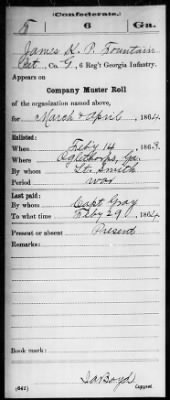 (Confederate.)
5 | 6 | Ga.
James K. P. Fountain
Pvt, Co. G, 6 Reg't Georgia Infantry.
Appears on
Company Muster Roll
of the organization named above,
for March & April, 1864.
Enlisted:
When Feby 14, 1863.
Where Oglethorpe, Ga.
By whom Lt. Smith
Period war
Last paid:
By whom Capt Gray
To what time Feby 29, 1864.
Present or absent Present
Remarks:
Book mark:
(642) Copyist.